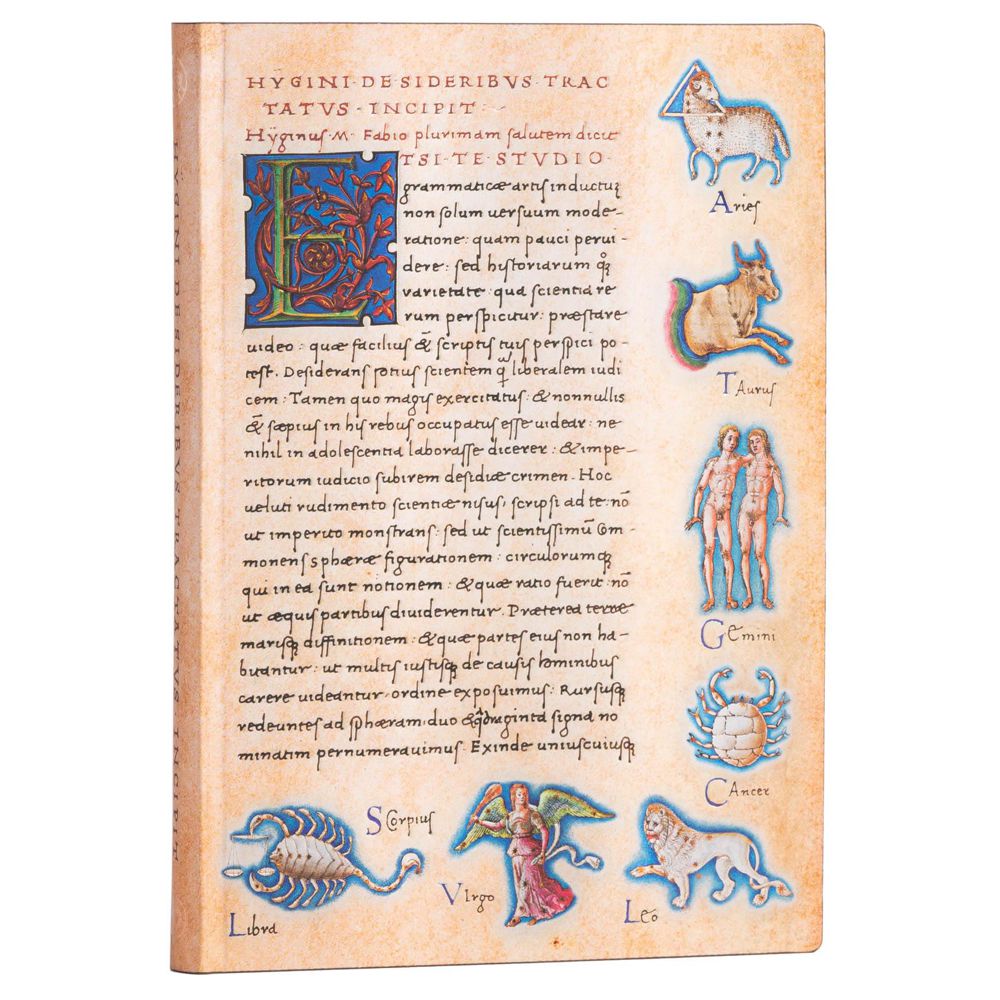 HŸGINI · DE SIDERIBVS · TRAC
TATVS · INCIPIT :
Hÿginus · M · Fabio plurimam salutem dicit
ETSI · TE · STVDIO ·
grammaticæ artis inductuꝫ
non solum uersuum mode-
ratione : quam pauci perui-
dere : sed historiarum qꝫ
varietate · qua scientia re
rum perspicitur : præstare
uideo : quæ facilius & scriptis tuis perspici po-
test . Desiderans potius scientem q̃ liberalem iudi
cem : Tamen quo magis exercitatus : & nonnullis
& sæpius in his rebus occupatus esse uidear : ne
nihil in adolescentia laborasse dicerer : & impe-
ritorum iudicio subirem desidiæ crimen · Hoc
ueluti rudimento scientiæ nisus , scripsi ad te · nō
ut imperito monstrans : sed ut scientissimū Com-
monens sphæræ figurationem : circulorumqꝫ
qui in ea sunt notionem : & quæ ratio fuerit : nō
ut æquis partibus diuiderentur . Præterea terræ
marisqꝫ diffinitionem : & quæ partes eius non ha-
bitantur : ut multis iustisqꝫ de causis hominibus
carere uideantur , ordine exposuimus : Rursusqꝫ
redeuntes ad sphæram , duo & quadraginta signa no
minatim pernumerauimus . Exinde uniuscuiusqꝫ
Aries
TAurus
GEmini
CAncer
SCorpius
VIrgo
LEo
Libra
HŸGINI · DE SIDERIBVS TRACTATVS INCIPIT